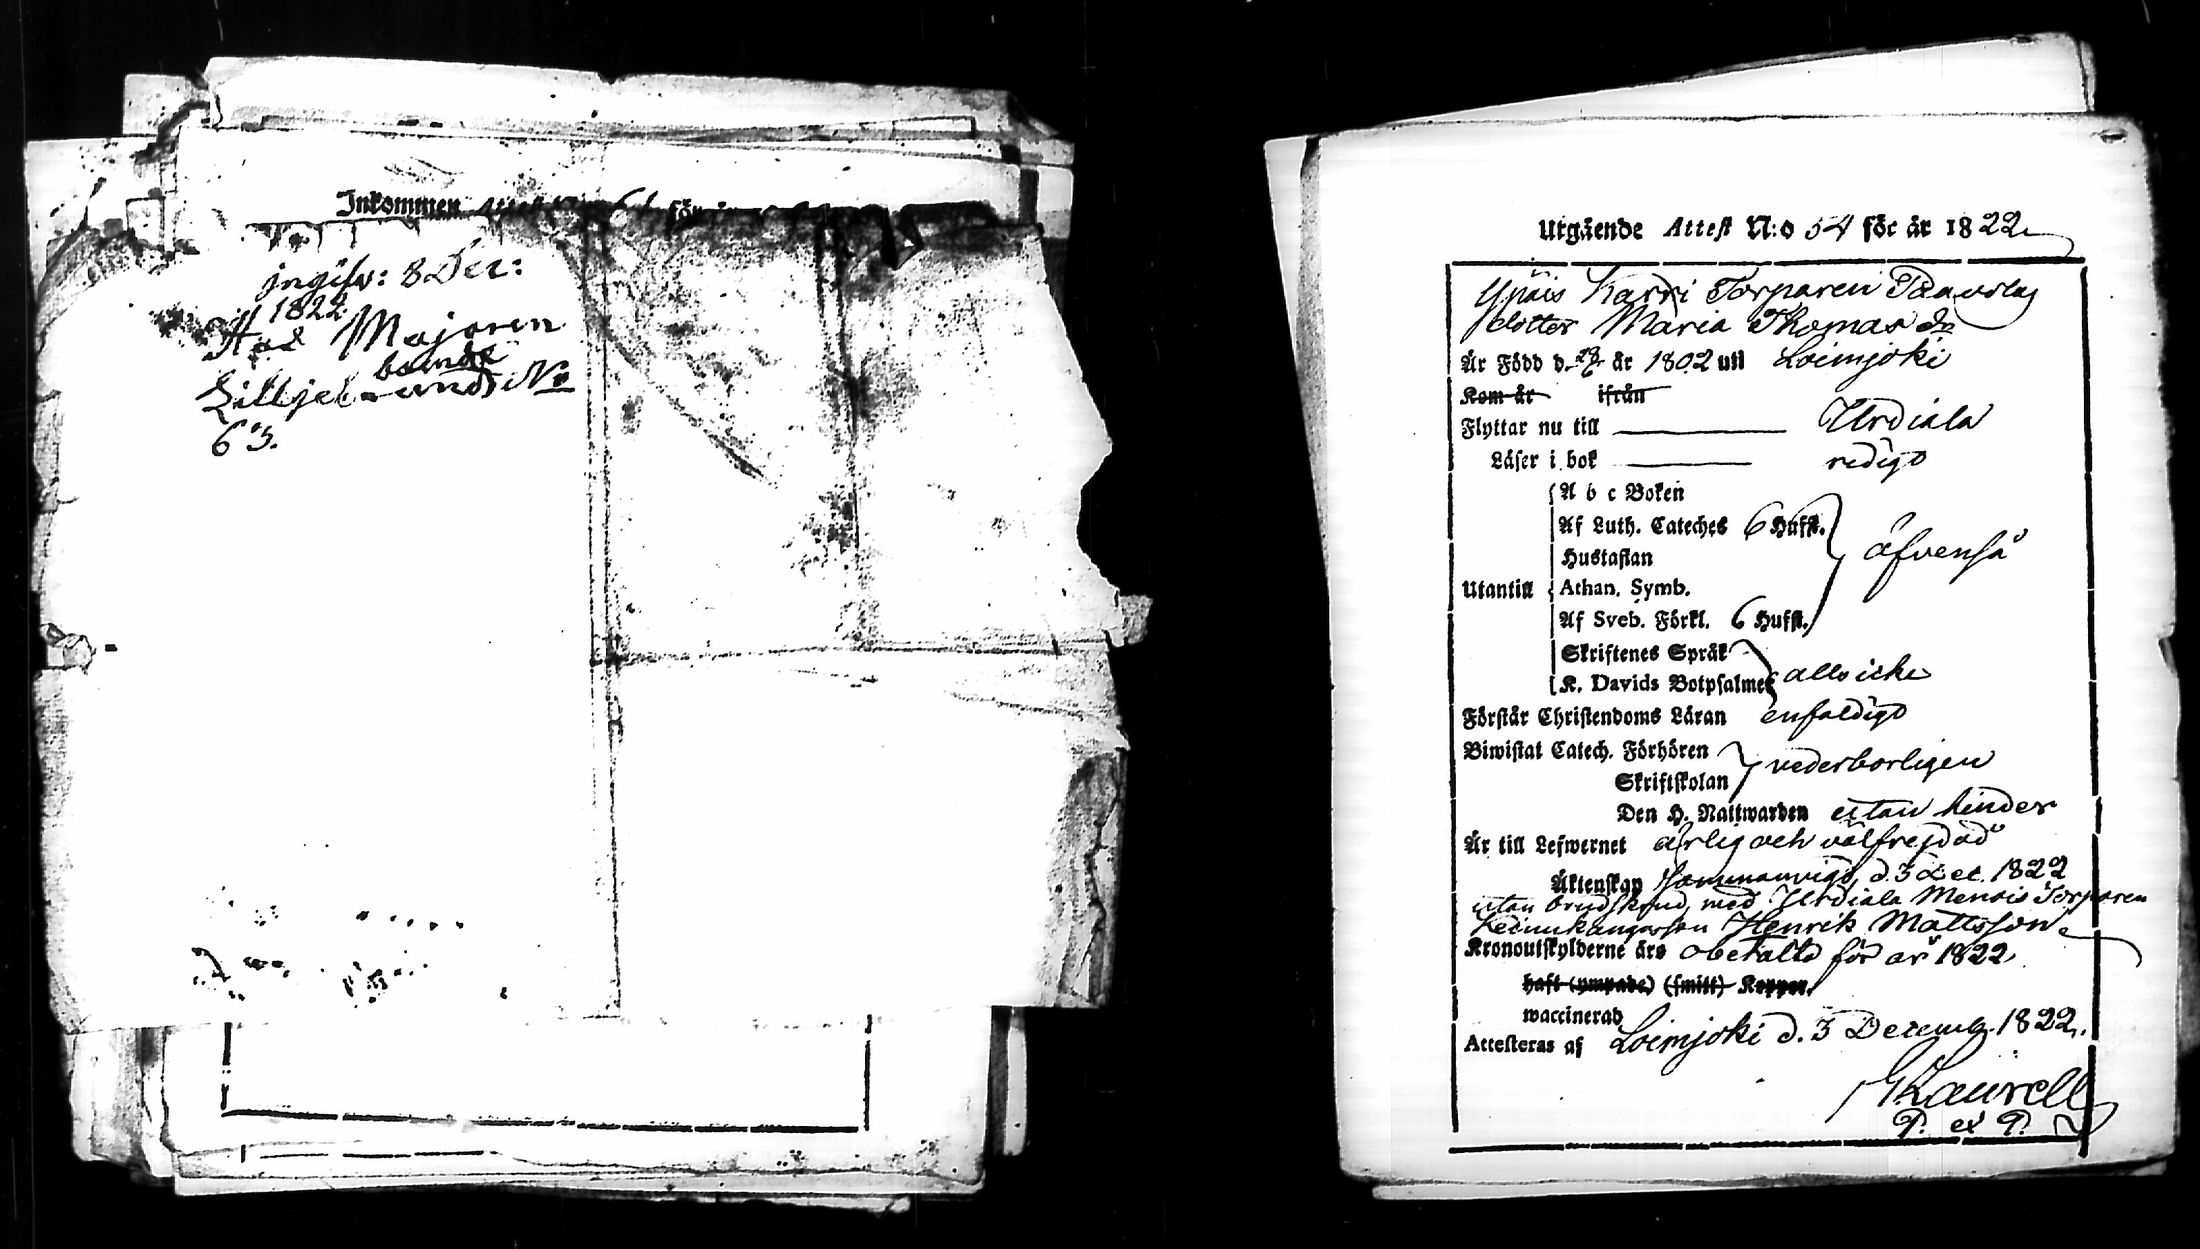 Inkommen Attest N:o 61 för
ingifv: 8 Dec:
1822
Had Majoren
bunds
63.
Utgående Attest N:o 54 för år 1822
Ypäis Karri Torparen Paavolas
dotter Maria Thomas dr
Är Född d. år 1802 uti Loimjoki
Kom år ifrån
Flyttar nu till Urdiala
Läser i bok redigt
A b c Boken
Af Luth. Cateches 6 Hufst.
Hustaflan
äfvenså
Utantill Athan. Symb.
Af Sveb. Förkl. 6 Hufst.
Skriftenes Språk
K. Davids Botpsalmer alls icke
Förstår Christendoms Läran enfaldigt
Biwistat Catech. Förhören
vederbörligen
Skriftskolan
Den H. Nattwarden utan hinder
Är till Lefwernet ärlig och välfrejdad
Äktenskap sammanvigd d. 3 Dec. 1822
utan brudskrud, med Urdiala Menois Torparen
Henrik Mattsson
Kronoutskylderne äro obetalta för år 1822
haft (ympade) (smitt) Koppor.
vaccinerad
Attesteras af Loimjoki d. 3 Decemb. 1822.
Laurell
P. ex P.